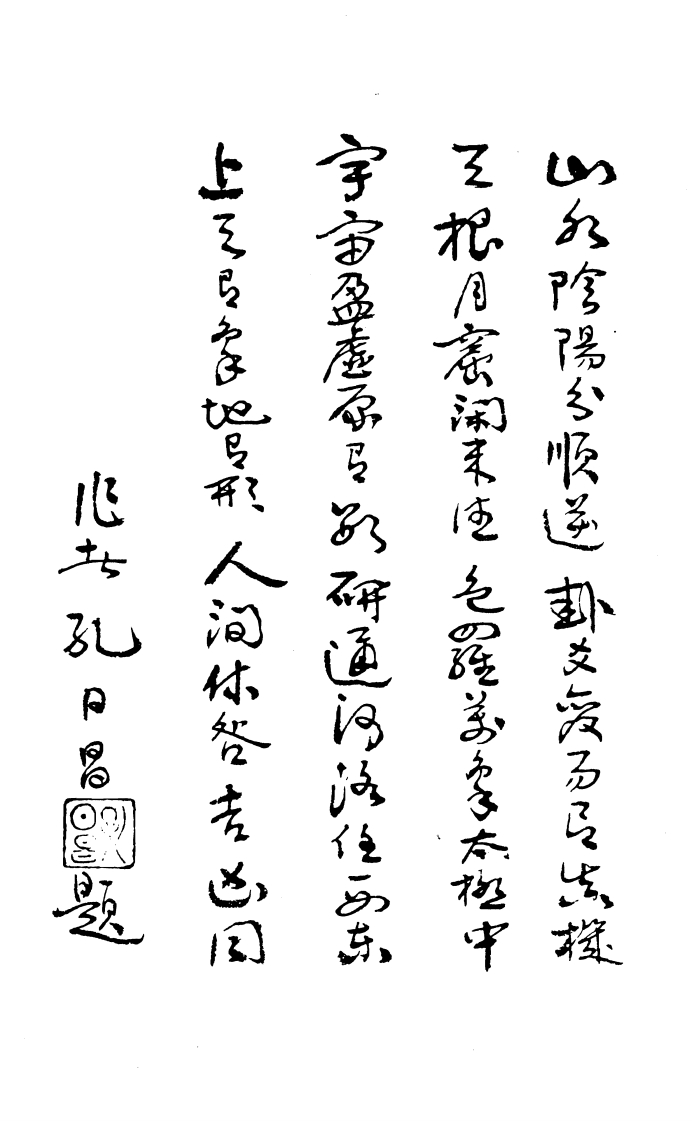 山水陰陽分順逆 卦爻變易有真機
天根月窟閑來往 包羅萬象太極中
宇宙盈虛原有數 研通河洛任西東
上天有象地有形 人間休咎吉凶同
作者孔日昌題